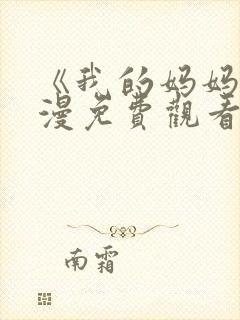 《我的妈妈
漫免費觀看
南霜